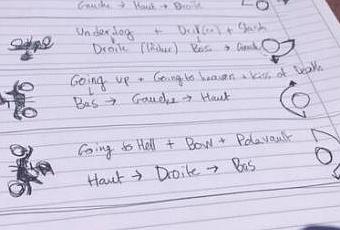 Gauche → Haut → Droite
Underdog + Drif(er) + Slash
Droite (lâcher) Bas → Gauche
Going up + Going to heaven + Kiss of Death
Bas → Gauche → Haut
Going to Hell + Bow + Polevault
Haut → Droite → Bas